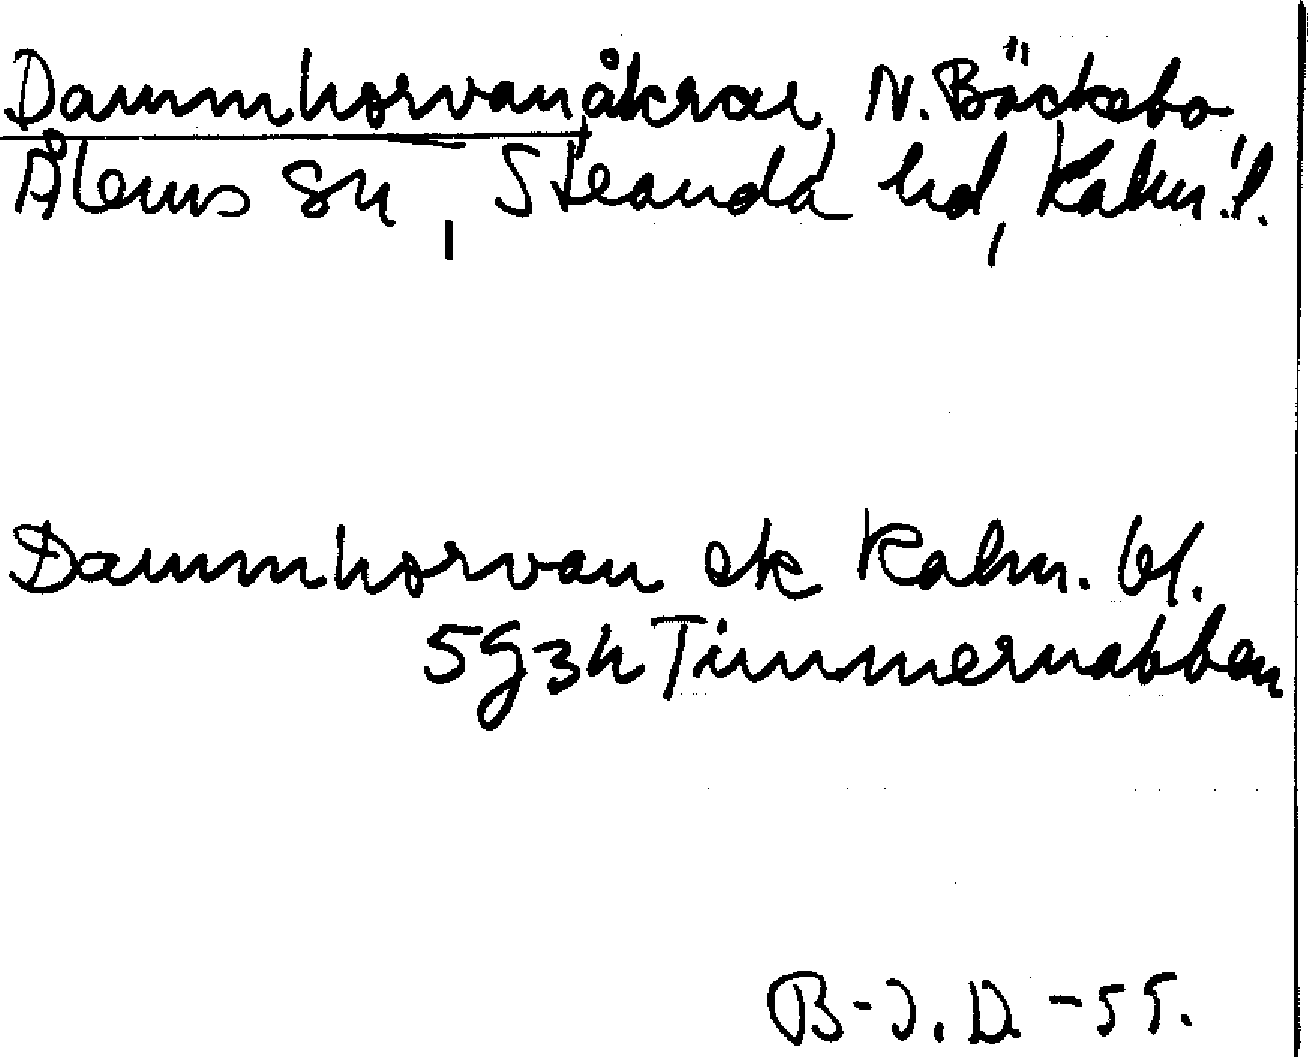 Dammhorvan, åkrar, N. Bäckebo
Ålems sn, Stranda hd, Kalm. l.
Dammhorvan ek Kalm. bl.
5g3h Timmernabben
B-J. D. -55.